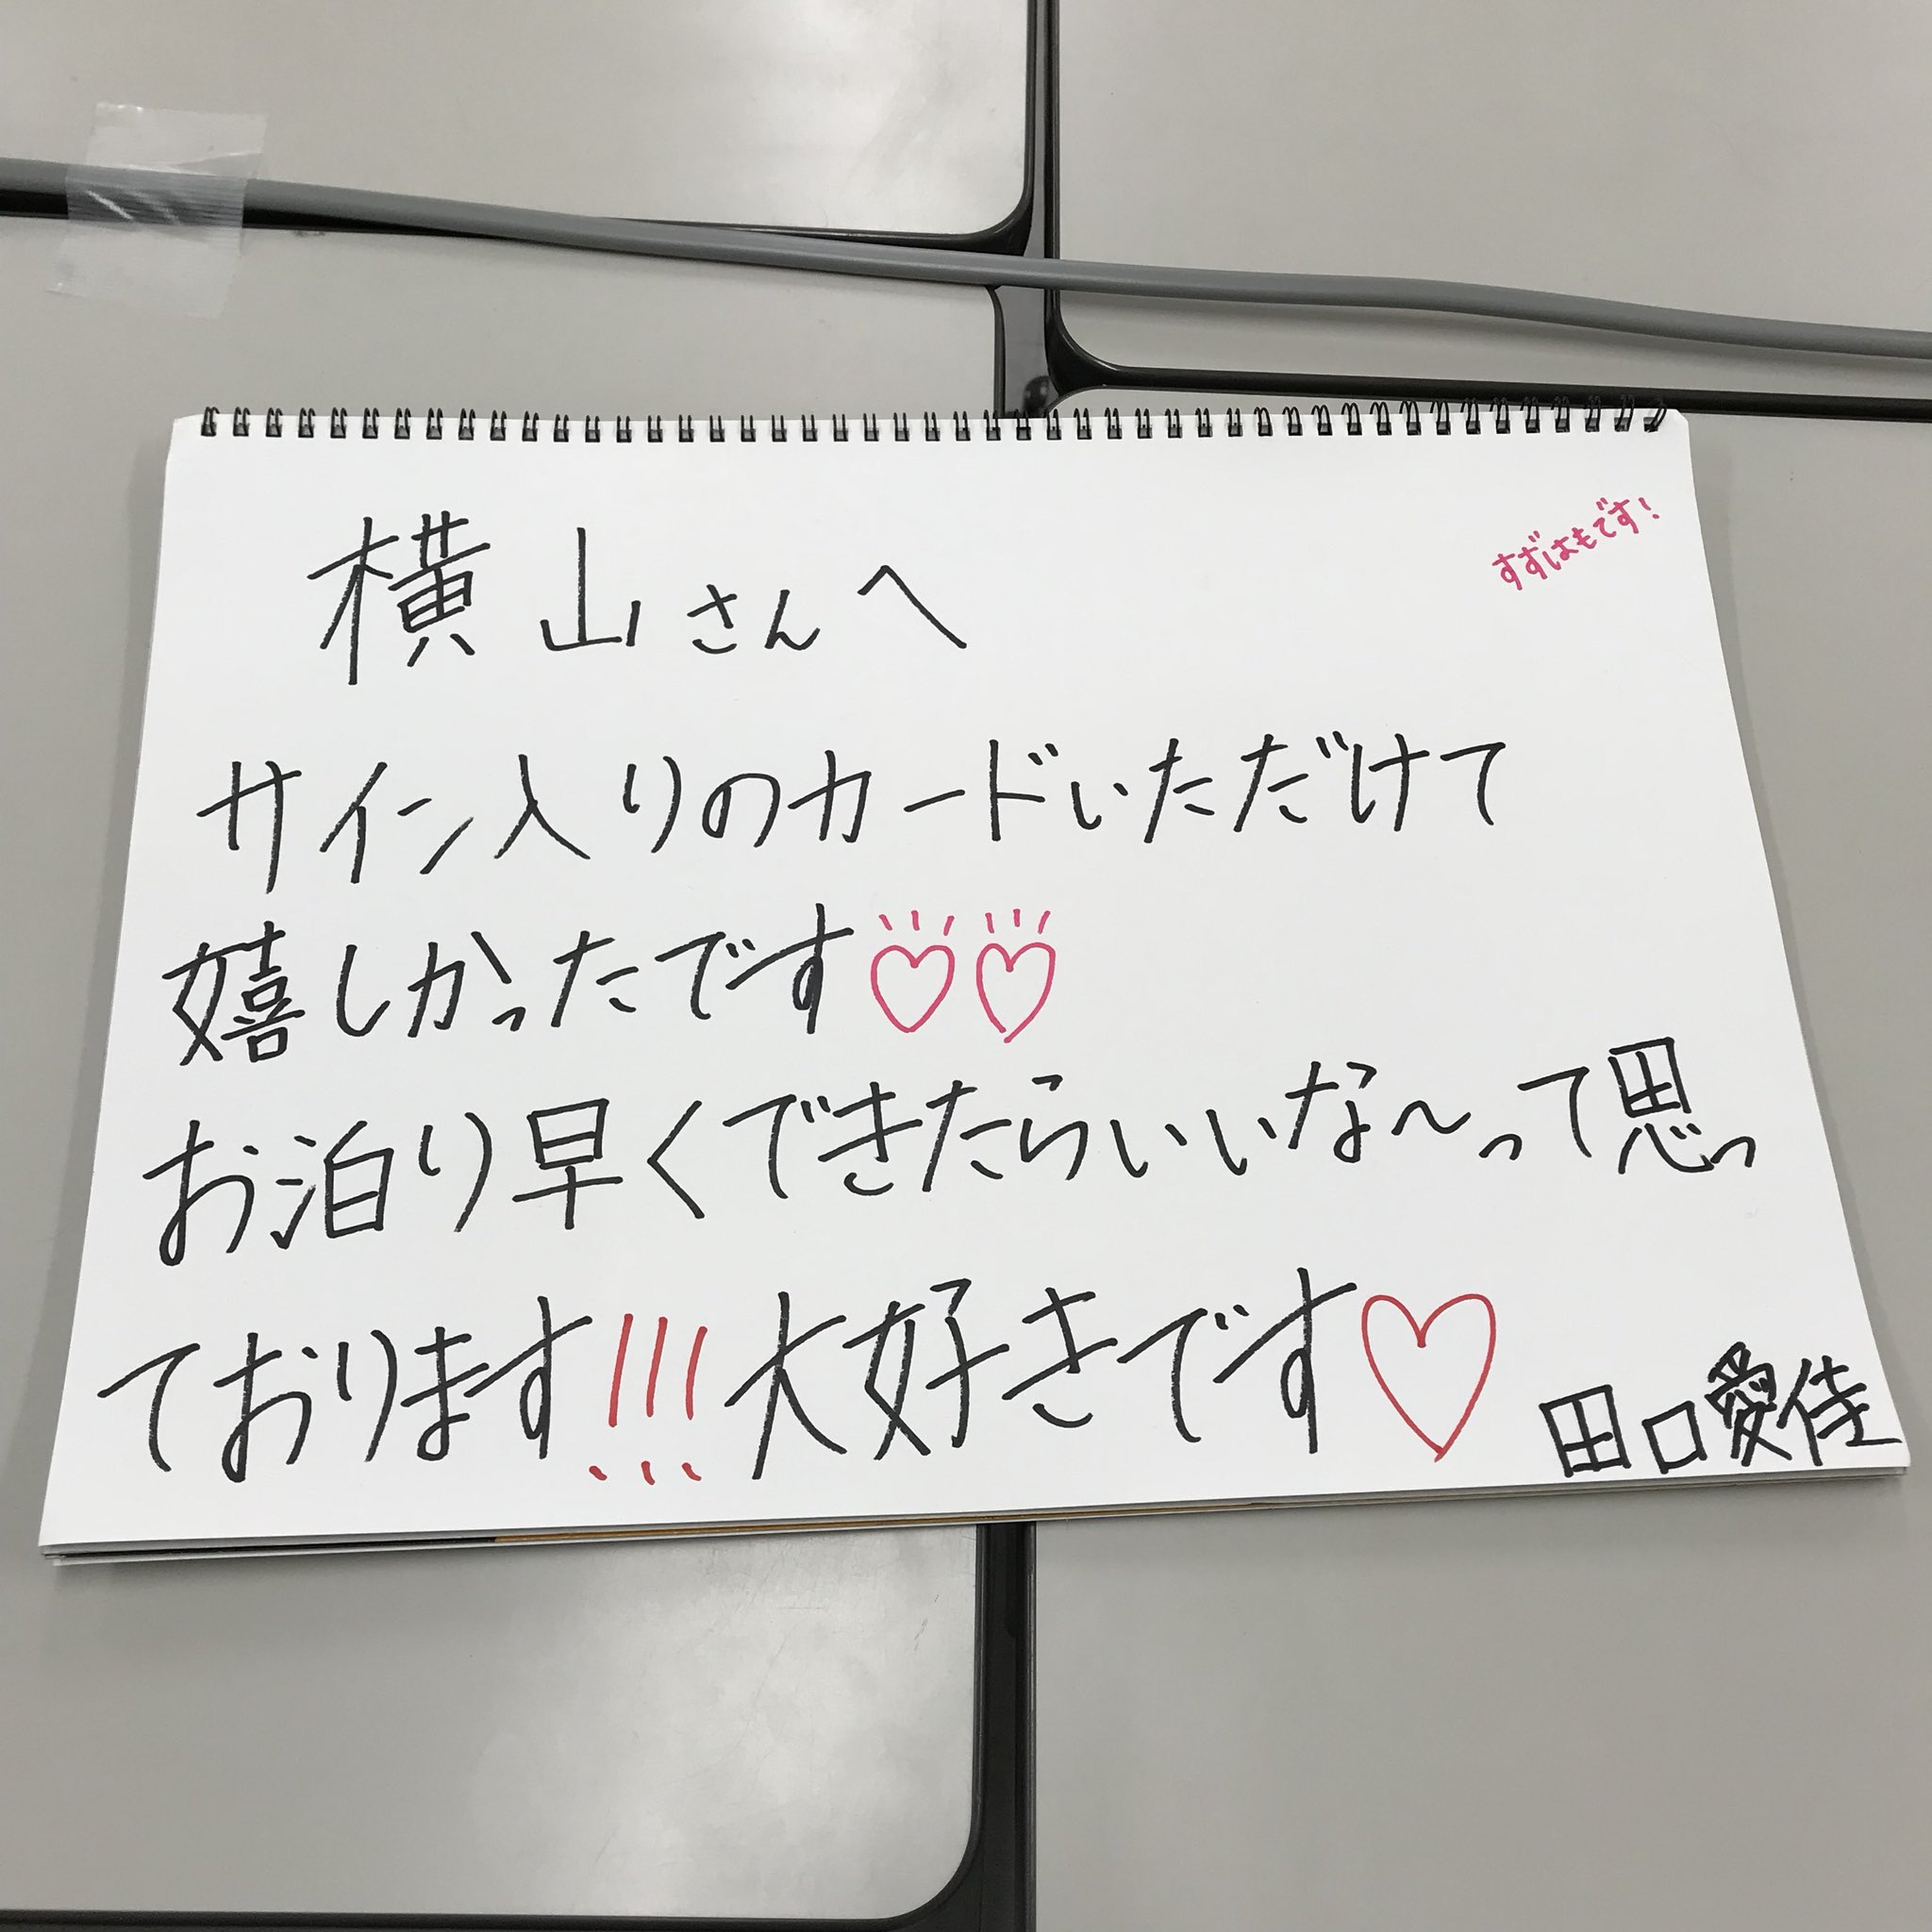 すずはもです!
横山さんへ
サイン入りのカードいただけて
嬉しかったです♡♡
お泊り早くできたらいいな〜って思っ
ております!!!大好きです♡
田口愛佳